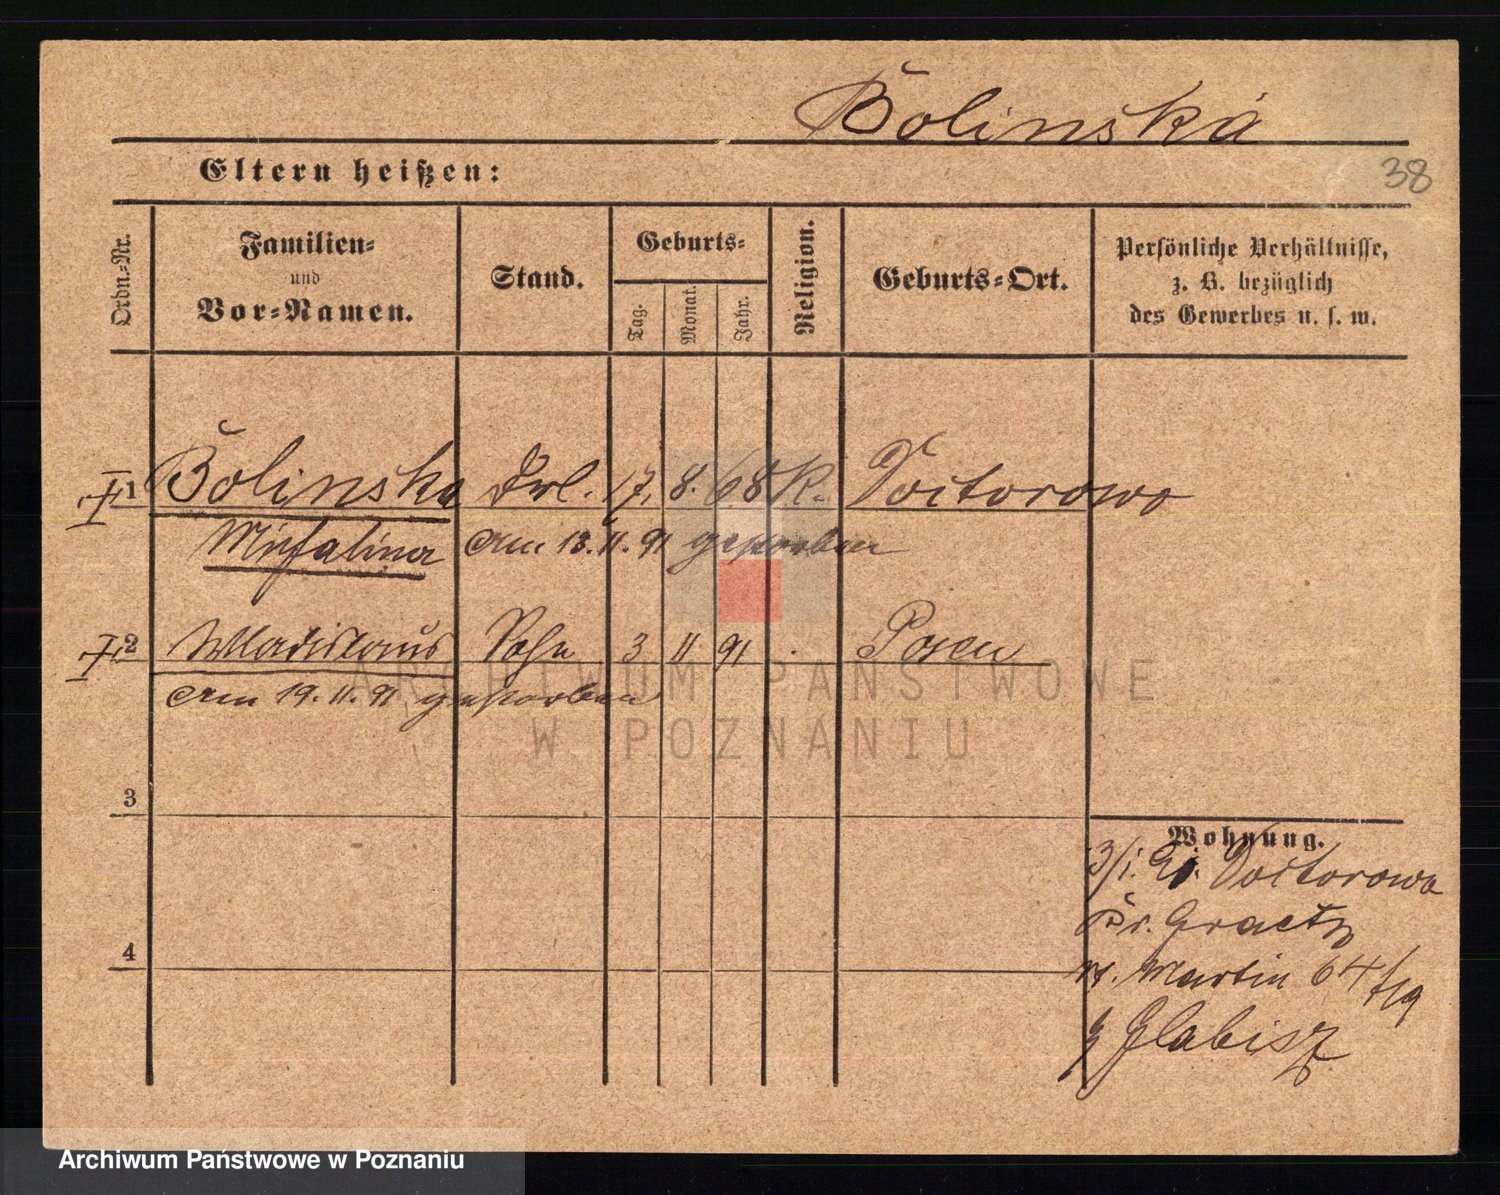 Bolinska
Eltern heißen:
38
Ordn.-Nr.
Familien-
und
Vor-Namen.
Stand.
Geburts-
Tag.
Monat.
Jahr.
Religion.
Geburts-Ort.
Persönliche Verhältnisse,
z. B. bezüglich
des Gewerbes u. s. w.
1 Bolinska Frl. 17. 8. 68 K. Doctorowo
Michalina am 13. 11. 91 gestorben
2 Wladislaus Sohn 3 11 91 Posen
am 19. 11. 91 gestorben
ARCHIWUM PAŃSTWOWE
W POZNANIU
3
Wohnung.
3/1. Doctorowo
Kr. Graetz
4
St. Martin 64
Glabisz
Archiwum Państwowe w Poznaniu